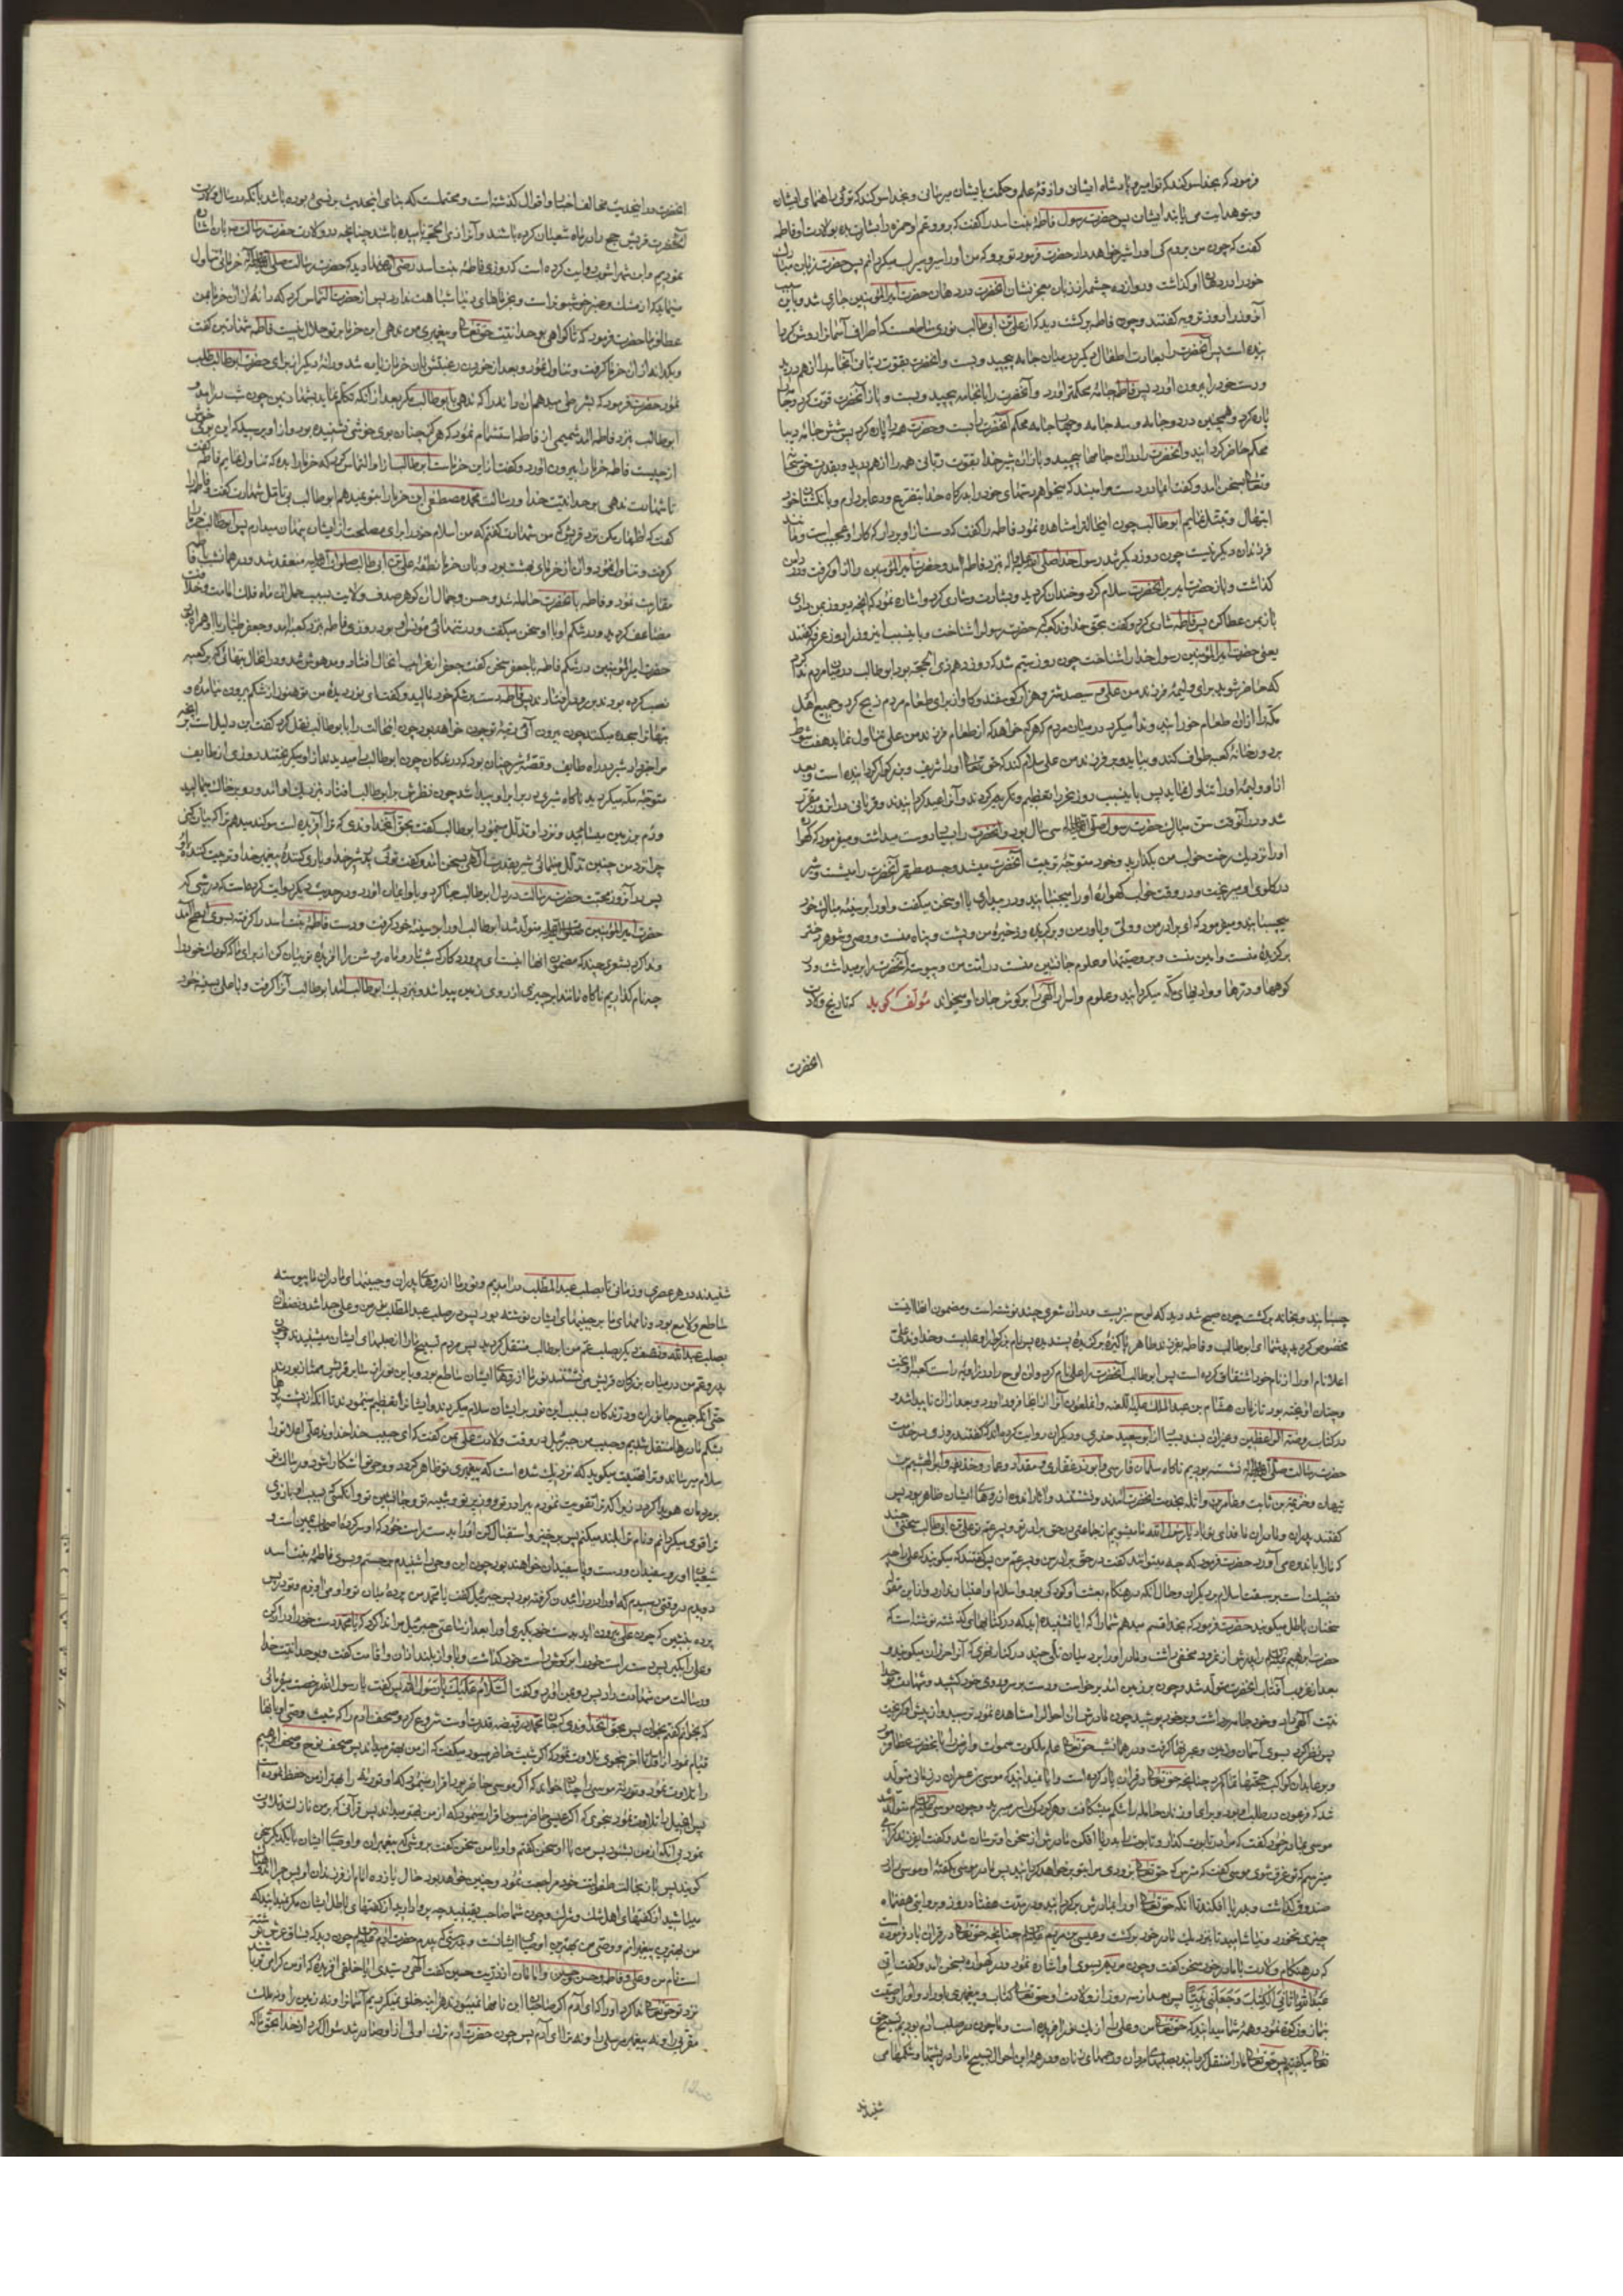 فرمود که بخدا سوکند که توئی امیر و پادشاه ایشان و از قه علم و حکمت بایشان میرسانی و بخدا سوکند که توئی راهنمای ایشان
و بتو هدایت می یابند ایشان پس حضرت رسول فاطمه بنت اسد را کفت که برو و عم او حمزه را بشارت ده بولادت او فاطمه
کفت که چون من بروم کی او را شیر خواهد داد حضرت فرمود تو برو که من او را سیر و سیراب میکردانم پس حضرت زبان مبارک
خود را در دهان او کذاشت و دوازده چشمه از زبان معجز نشان آنحضرت در دهان حضرت امیرالمؤمنین جاری شد و باین سبب
آنروز را روز ترویه کفتند و چون فاطمه برکشت دید که از علی بن ابی طالب نوری ساطعست که اطراف آسمانرا روشن کرد
پس آنحضرت را بعادت اطفال دیکر در میان جامه پیچید و بست و آنحضرت بقوت ربانی آنجامه را از هم درید
و دست خود را بیرون آورد پس فاطمه جامهٔ محکمتر آورد و آنحضرت را بآنجامه پیچید و بست و باز آنحضرت قوت کرد و جامه را
پاره کرد و همچنین در دو جامه و سه جامه و چهار جامه محکم آنحضرت را بست و حضرت همه را پاره کرد پس شش جامهٔ دیبا
محکم حاضر کردانید و آنحضرت را در آن جامها پیچید و باز آن شیر خدا بقوت ربانی همه را از هم درید و بقدرت حق سبحانه
و تعالی بسخن آمد و کفت ای مادر دست مرا مبند که میخواهم دستهای خود را بدرکاه خدا بتضرع و دعا بردارم و بانکشتان خود
ابتهال و تبتل نمایم ابو طالب چون اینحال را مشاهده نمود فاطمه را کفت که دست از او بردار که کار او عجیب است و مانند
فرزندان دیکر نیست چون روز دیکر شد رسول خدا صلی الله علیه و آله بنزد فاطمه آمد و حضرت امیرالمؤمنین را از او کرفت و در دامن
کذاشت و باز حضرت امیر بر آنحضرت سلام کرد و خندان کردید و بشارت و شادی کرد و اشاره نمود که آنچه دیروز بمن دادی
باز بمن عطا کن پس فاطمه شادی کرد و کفت بحق خداوند کعبه که حضرت رسول را شناخت و باینسبب اینروز را روز عرفه کفتند
یعنی حضرت امیرالمؤمنین رسول خدا را شناخت چون روز سیم شد که روز دهم ذی الحجه بود ابو طالب در میان مردم ندا کرد
که حاضر شوید برای ولیمهٔ فرزند من علی و سیصد شتر و هزار کوسفند و کاو از برای طعام مردم ذبح کرد و جمیع اهل
مکه را از آن طعام خورانید و ندا میکرد در میان مردم که هر که خواهد که از طعام فرزند من علی تناول نماید هفت شوط
بر دور خانه کعبه طواف کند و بیاید و بر فرزند من علی سلام کند که حق تعالی او را شریف و بزرکوار کردانیده است و بعد
از آن ولیمهٔ او را تناول نماید پس باینسبب روز نحر را تعظیم و تکریم کردند و آنرا عید کردانیدند و قربانی در آنروز مقرر
شد و در آنوقت سن مبارک حضرت رسول صلی الله علیه و آله سی سال بود و آنحضرت را بسیار دوست میداشت و میفرمود که کهوارهٔ
او را نزدیک رخت خواب من بکذارید و خود متوجه تربیت آنحضرت میشد و جسد مطهر آنحضرت را میشست و شیر
در کلوی او میریخت و در وقت خواب کهوارهٔ او را میجنبانید و در بیداری با او سخن میکفت و او را بر سینهٔ مبارک خود
میچسبانید و میفرمود که این برادر من و ولی و یاور من و برکزیده و ذخیرهٔ من و پشت و پناه منست و وصی و شوهر دختر
برکزیدهٔ منست و امین منست و بر وصیتها و علوم جانشین منست در امت من و پیوسته آنحضرت را برمیداشت و در
کوهها و درّها و وادیهای مکه میکردانید و علوم و اسرار الهی را بر کوش جان او میخواند مؤلف کوید که تاریخ ولادت
آنحضرت
آنحضرت در اینحدیث مخالف اخبار و اقوال کذشته است و محتملست که بنای اینحدیث بر نسئ بوده باشد یا آنکه در سال ولادت
آنحضرت قریش حج را در ماه شعبان کرده باشند و آنرا ذی الحجه نامیده باشند چنانچه در ولادت حضرت رسالت بیان اشاره
نمودیم و ابن شهراشوب روایت کرده است که روزی فاطمه بنت اسد رضی الله عنها دید که حضرت رسالت صلی الله علیه و آله خرمائی تناول
مینماید که از مشک و عنبر خوشبوتر است و بخرماهای دنیا شباهت ندارد پس از حضرت التماس کرد که دانه از آن خرما بمن
عطا فرما حضرت فرمود که تا کواهی بوحدانیت حق تعالی و پیغمبری من ندهی این خرما بر تو حلال نیست فاطمه شهادتین کفت
و یکدانه از آن خرما کرفت و تناول نمود و بعد از خوردن رغبتش بآن خرما زیاده شد و دانهٔ دیکر از برای حضرت ابو طالب طلب
نمود حضرت فرمود که بشرطی میدهم آن دانه را که ندهی بابو طالب مکر بعد از آنکه تکلم نماید بشهادتین چون شب درآمد و
ابو طالب بنزد فاطمه آمد شمیمی از فاطمه استشمام نمود که هرکز چنان بوی خوشی نشنیده بود و از او پرسید که این بوی خوش
از چیست فاطمه خرما را بیرون آورد و کفت از این خرماست ابو طالب از او التماس کرد که خرما را بده که تناول نمایم فاطمه کفت
تا شهادت ندهی بوحدانیت خدا و رسالت محمد مصطفی این خرما را بتو نمیدهم ابو طالب بی تأمل شهادت کفت و فاطمه را
کفت که اظهار مکن نزد قریش که من شهادت کفتم که من اسلام خود را برای مصلحت از ایشان پنهان میدارم پس ابو طالب خرما را
کرفت و تناول نمود و آن از خرمای بهشت بود و بآن خرما نطفهٔ علی بن ابی طالب صلوات الله علیه منعقد شد و در همانشب با فاطمه
مقاربت نمود و فاطمه بآنحضرت حامله شد و حسن و جمال آن کوهر صدف ولایت بسبب حمل آن ماه فلک امامت و خلافت
مضاعف کردید و در شکم او با او سخن میکفت و در تنهائی مونس او بود روزی فاطمه بنزد کعبه آمد و جعفر طیار با او همراه بود
حضرت امیرالمؤمنین در شکم فاطمه با جعفر سخن کفت جعفر از غرایب اینحال افتاد و مدهوش شد و در آنحال بتهائی که بر کعبه
نصب کرده بودند بر رو در افتادند پس فاطمه دست بر شکم خود مالید و کفت ای نور دیدهٔ من تو هنوز از شکم بیرون نیامدهٔ و
بتها ترا سجده میکنند چون بیرون آئی رتبهٔ تو چون خواهد بود چون اینحالت را بابو طالب نقل کرد کفت این دلیل است بر آنچه
مرا خبر داد شیر در راه طایف و قصهٔ شیر چنان بود که درندکان چون ابو طالب را میدیدند از او میکریختند روزی از طایف
متوجه مکه میکردید ناکاه شیری در برابر او پیدا شد چون نظرش بر ابو طالب افتاد بنزدیک او آمد و رو بر خاک میمالید
و دم بر زمین میسائید و نزد او تذلل مینمود ابو طالب کفت بحق آنخداوندی که ترا آفریده است سوکند میدهم ترا که بیان کنی
چرا نزد من چنین تذلل مینمائی شیر بقدرت الهی بسخن آمد و کفت توئی پدر شیر خدا و یاری کنندهٔ پیغمبر خدا و تربیت کننده او
پس در آنروز محبت حضرت رسالت در دل ابو طالب جا کرد و باو ایمان آورد و در حدیث دیکر روایت کرده است که در شبی که
حضرت امیرالمؤمنین صلوات الله علیه متولد شد ابو طالب او را بر سینهٔ خود کرفت و دست فاطمه بنت اسد را کرفته بسوی ابطح آمد
و ندا کرد بشعری چند که مضمون آنها اینست ای پروردکار که شب تار و ماه روشن را آفریدهٔ تو بیان کن از برای ما که کودک خود را
چه نام کذاریم ناکاه مانند ابر چیزی از روی زمین پیدا شد و بنزدیک ابو طالب آمد ابو طالب آنرا کرفت و با علی بسینهٔ خود
چسبانید و بخانه برکشت چون صبح شد دید که لوح سبزیست و در آن شعری چند نوشته است و مضمون آنها اینست
مخصوص کردید شما ای ابو طالب و فاطمه بفرزند طاهر پاکیزهٔ برکزیدهٔ پسندیده پس نام بزرکوار او علیست و خداوند علی
اعلا نام او را از نام خود اشتقاق کرده است پس ابو طالب آنحضرت را علی نام کرد و آن لوح را در زاویهٔ راست کعبه آویخت
و چنان آویخته بود تا زمان هشام بن عبد الملک علیه اللعنه و آنملعون آنرا از آنجا فرود آورد و بعد از آن ناپیدا شد و
در کتاب روضة الواعظین و غیر آن بسند بسیار از ابو سعید خدری و دیکران روایت کرده اند که کفتند روزی در خدمت
حضرت رسالت صلی الله علیه و آله نشسته بودیم ناکاه سلمان فارسی و ابوذر غفاری و مقداد و عمار و حذیفه و ابو الهیثم بن
تیهان و خزیمه بن ثابت و عامر بن واثله بخدمت آنحضرت آمدند و نشستند و آثار اندوه از روهای ایشان ظاهر بود پس
کفتند پدران و مادران ما فدای تو باد یا رسول الله ما میشنویم از جماعتی در حق برادرت و پسر عم تو علی بن ابو طالب سخنی چند
که ما را باندوه می آورد حضرت فرمود که چه میتوانند کفت در حق برادر من و پسر عم من پس کفتند که میکویند که علی را چه
فضیلت است بر سبقت اسلام بر دیکران و حال آنکه در هنکام بعثت او کودکی بود و اسلام او اعتبار ندارد و از این مقوله
سخنان باطل میکویند حضرت فرمود که بخدا قسم میدهم شما را که آیا نشنیده اید که در کتابهای کذشته نوشته است که
حضرت ابراهیم علیه السلام را پدرش از نمرود مخفی داشت و مادر او را در میان تلی چند در کنار نهری که آنرا حزران میکویند و
بعد از غروب آفتاب آنحضرت متولد شد و چون بر زمین آمد برخواست و دست بر سر و روی خود کشید و شهادت بوحدا
نیت الهی داد و خود جامه برداشت و بر خود پوشید چون مادرش آن احوال را مشاهده نمود ترسید و از پیش او کریخت
پس نظر کرد بسوی آسمان و زمین و عبرتها کرفت و در همانشب حق تعالی علم ملکوت سموات و ارض را بآنحضرت عطا فرمود
و بر عابدان کواکب حجتها تمام کرد چنانچه حق تعالی در قرآن یاد کرده است و آیا نمیدانید که موسی بن عمران در زمانی متولد
شد که فرعون در طلب او بود و برای او زنان حامله را شکم میشکافت و هر کودک را سر میبرید و چون موسی علیه السلام متولد شد
موسی بمادر خود کفت که مرا در تابوت کذار و تابوت را بدریا افکن مادرش از سخن او ترسان شد و کفت ای فرزند کرامی
میترسم که تو غرق شوی موسی کفت که مترس که حق تعالی بزودی مرا بتو بر خواهد کردانید پس مادر موسی بکفتهٔ او موسی را در
صندوقی کذاشت و بدریا افکند تا آنکه حق تعالی او را بمادرش برکردانید و در مدت هفتاد روز و بروایتی هفت ماه
چیزی نخورد و نیاشامید تا بنزدیک مادر خود برکشت و عیسی بن مریم علیه السلام چنانچه حق تعالی در قرآن یاد فرموده است
که در هنکام ولادت با مادر خود سخن کفت و چون مریم بسوی او اشاره نمود و در کهواره بسخن آمد و کفت انی
عبد الله آتانی الکتاب و جعلنی نبیا پس بعد از سه روز از ولادت او حق تعالی کتاب و پیغمبری باو داد و او را وصیت
بنماز و زکوة نمود و همهٔ شما میدانید که حق تعالی من و علی را از یک نور آفریده است و ما چون در صلب آدم بودیم تسبیح حق
تعالی میکفتیم پس حق تعالی ما را منتقل کردانید بصلبهای پدران و رحمهای زنان و در همهٔ این احوال تسبیح ما را در پشتها و شکمها می
شنیدند
شنیدند در هر عصری و زمانی تا بصلب عبد المطلب درآمدیم و نور ما از روهای پدران و جبینهای مادران ما پیوسته
ساطع و لامع بود و نامهای ما بر جبینهای ایشان نوشته بود پس در صلب عبد المطلب نور من و علی جدا شد و نصف آن
بصلب عبد الله و نصف دیکر بصلب عم من ابو طالب منتقل کردید پس مردم تسبیح ما را از صلبهای ایشان میشنیدند و چون
پدر و عم من در میان بزرکان قریش می نشستند نور ما از روهای ایشان ساطع بود و باین نور از سایر قریش ممتاز بودند
حتی آنکه جمیع جانوران و درندکان بسبب این نور بر ایشان سلام میکردند و ایشانرا تعظیم مینمودند تا آنکه از پشت پدرها
بشکم مادرها منتقل شدیم و حبیب من جبرئیل در وقت ولادت علی بمن کفت که ای حبیب خدا خداوند علی اعلا ترا
سلام میرساند و ترا تهنیت میکوید که نزدیک شده است که پیغمبری تو ظاهر کردد و وحی تو آشکارا شود و رسالت تو
بر مردمان هویدا کردد زیرا که ترا تقویت نمودم ببرادر تو و وزیر تو و شبیه تو و جانشین تو و آنکسی که بسبب او بازوی
ترا قوی میکردانم و نام ترا بلند میکنم پس برخیز و استقبال کن او را بدست راست خود که او سر کردهٔ اصحاب یمین است و
شیعیان او رو سفیدان و دست و پا سفیدان خواهند بود چون این وحی را شنیدم برجستم و بسوی فاطمه بنت اسد
دویدم در وقتی رسیدم که او را درد زائیدن کرفته بود پس جبرئیل کفت یا محمد من پردهٔ میان تو و او می آویزم و تو در پس
پرده بنشین که چون علی بیرون آید بدست خود بکیری او را بعد از ساعتی جبرئیل مرا ندا کرد که یا محمد دست خود را دراز کن
و علی را بکیر پس دست راست خود را بر کوش راست خود کذاشت و بآواز بلند اذان و اقامت کفت و بوحدانیت خدا
و رسالت من شهادت داد پس رو بمن آورد و کفت السلام علیک یا رسول الله پس کفت یا رسول الله رخصت میفرمائی
که بخوانم کفتم بخوان پس بحق آنخداوندی که جان محمد در قبضهٔ قدرت اوست شروع کرد و صحف آدم را که شیث وصی او بآنها
قیام نمود از اول تا آخر بنحوی تلاوت نمود که اکر شیث حاضر میبود میکفت که از من بهتر میداند پس صحف نوح و صحف ابراهیم
را تلاوت نمود و توریت موسی را چنان خواند که اکر موسی حاضر بود اقرار مینمود که او توریت را بهتر از من حفظ نموده است
پس انجیل را تلاوت نمود بنحوی که اکر عیسی حاضر میبود اقرار مینمود که از من بهتر میداند پس قرآنی که بر من نازل شد تلاوت
نمود بی آنکه از من بشنود پس من با او سخن کفتم و او با من سخن کفت بروشی که پیغمبران و اوصیای ایشان با یکدیکر سخن
کویند پس باز بحالت طفولیت خود مراجعت نمود و چنین خواهد بود حال یازده امام از فرزندان او پس چرا اندوهناک
میباشید از کفتهای اهل شک و شرک و چون شما صاحب یقینید چه پروا دارید از کفتهای باطل ایشان مکر نمیدانید که
من بهترین پیغمبرانم و وصی من بهترین اوصیای ایشانست و بدرستی که پدرم حضرت آدم علیه السلام چون دید که بر ساق عرش نوشته شده
است نام من و علی و فاطمه و حسن و حسین و امامان از ذریت حسین کفت الهی و سیدی آیا خلقی آفریدهٔ که از من کرامی تر باشد
نزد تو حق تعالی ندا کرد او را که ای آدم اکر صاحبان این نامها نمیبودند هر آینه خلق نمیکردم آسمانرا و نه زمین را و نه ملک
مقرب را و نه پیغمبر مرسل را و نه ترا ای آدم پس چون حضرت آدم ترک اولی از او صادر شد سؤال کرد از خدا بحق ما که